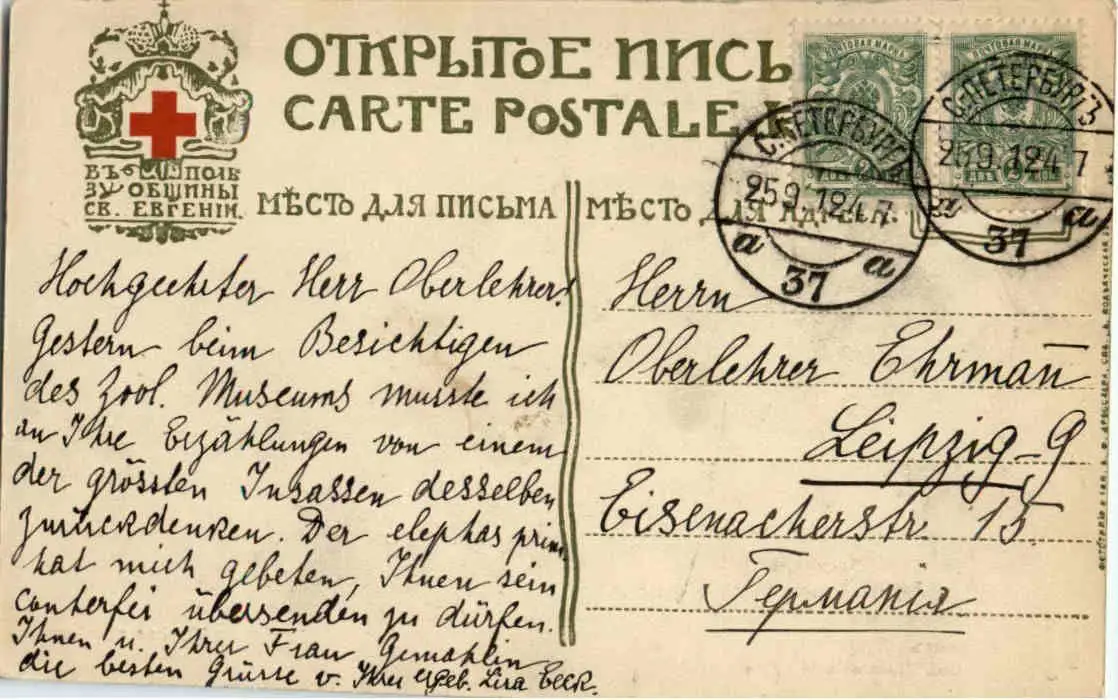 ОТКРЫТОЕ ПИСЬ
CARTE POSTALE
ВЪ ПОЛЬ
ЗУ ОБЩИНЫ
СВ. ЕВГЕНІИ.
МѢСТО ДЛЯ ПИСЬМА
МѢСТО ДЛЯ АДРЕСА.
ПОЧТОВАЯ МАРКА
ПОЧТОВАЯ МАРКА
С.ПЕТЕРБУРГЪ
25 9.12 4 7
a a
37
С.ПЕТЕРБУРГЪ
25 9.12 4 7
a a
37
Hochgeehrter Herr Oberlehrer!
Gestern beim Besichtigen
des Zool. Museums musste ich
an Ihre Erzählungen von einem
der grössten Insassen desselben
zurückdenken. Der elephas prim.
hat mich gebeten, Ihnen sein
conterfei übersenden zu dürfen.
Ihnen u. Ihrer Frau Gemahlin
die besten Grüsse v. Ihrer Lisa
Herrn
Oberlehrer Ehrman̄
Leipzig-G
Eisenacherstr. 15.
Германія